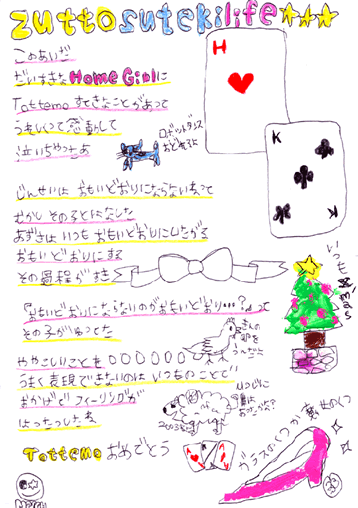 zutto suteki life
このあいだ
だいすきな Home Girlに
Tottemo すてきなことがあって
うれしくって感動して
泣いちゃったよ
ロボットダンス
H
K
じんせいは おもいどおりにならないって
むかし その子とはなした
あずきは いつも おもいどおりにしたがる
おもいどおりにする
その過程が好き
『おもいどおりにならないのがおもいどおり…?』って
その子がゆってた
ややこしいことを
うまく表現できないのは いつものこと
おかげで フィーリングが
はったつしたよ
Tottemo おめでとう
いつも
2003
ガラスのくつが幸せのくつ